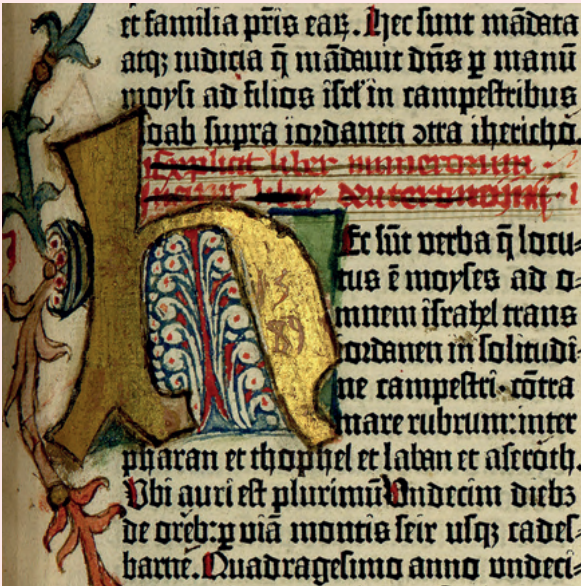 et familia pr̄is eaꝝ. Hec sunt mādata
atqꝫ iudicia q̄ mādauit dn̄s ꝑ manū
moysi ad filios isrl̄ in campestribus
moab supra iordanen ↄtra ihericho.
Explicit liber numerorum
Incipit liber deuteronomii
h
Ec sūt verba q̄ locu-
tus ē moyses ad o-
mnem israhel trans
iordanen in solitudi-
ne campestri·cōtra
mare rubrum:inter
pharan et thophel et laban et aseroth.
Vbi auri est plurimū Vndecim diebꝫ
de oreb:ꝑ viā montis seir usqꝫ cades-
barne. Quadragesimo anno undeci-